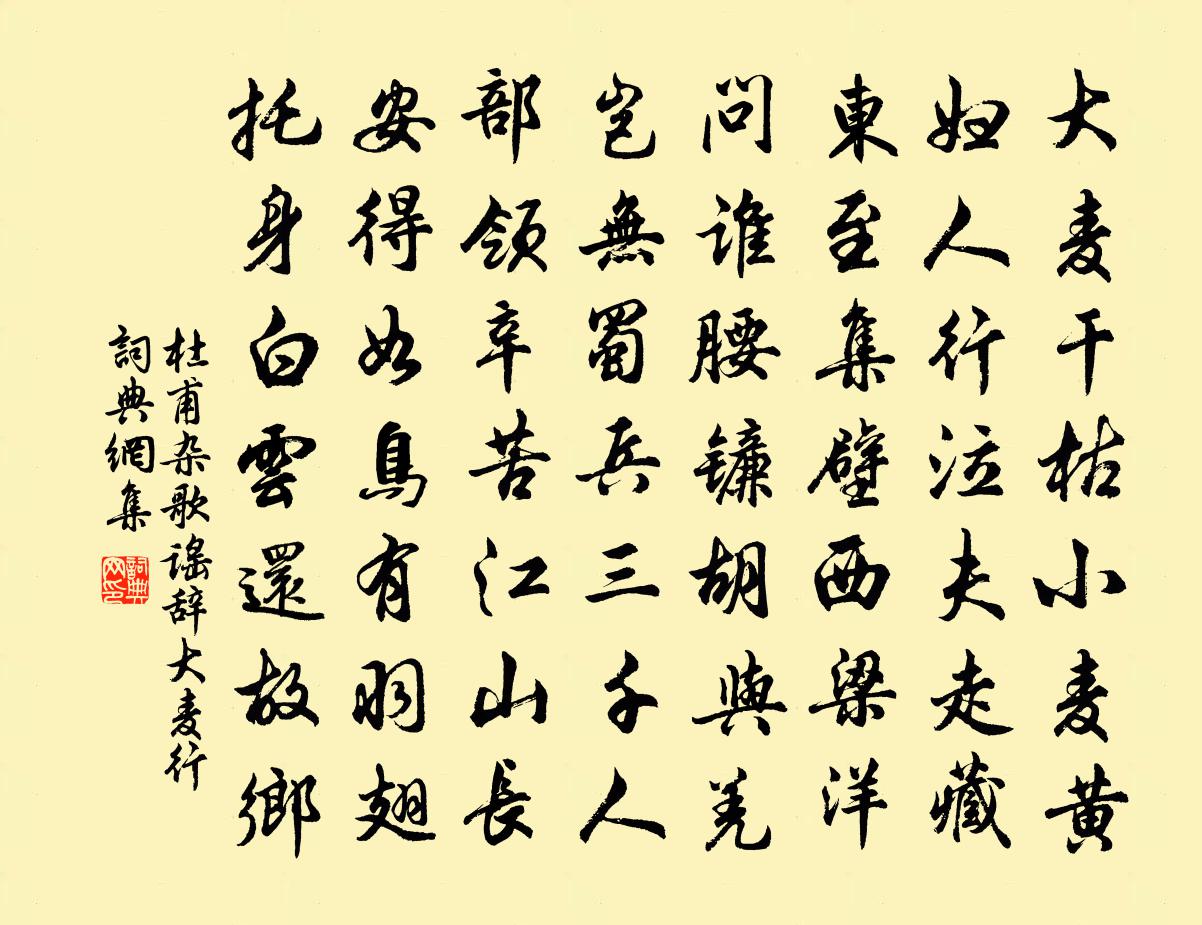 大麦干枯小麦黄
妇人行泣夫走藏
東至集壁西梁洋
问谁腰镰胡與羌
岂無蜀兵三千人
部领辛苦江山長
安得如鳥有羽翅
托身白雲還故鄉
杜甫杂歌谣辞大麦行
詞典網集
詞典